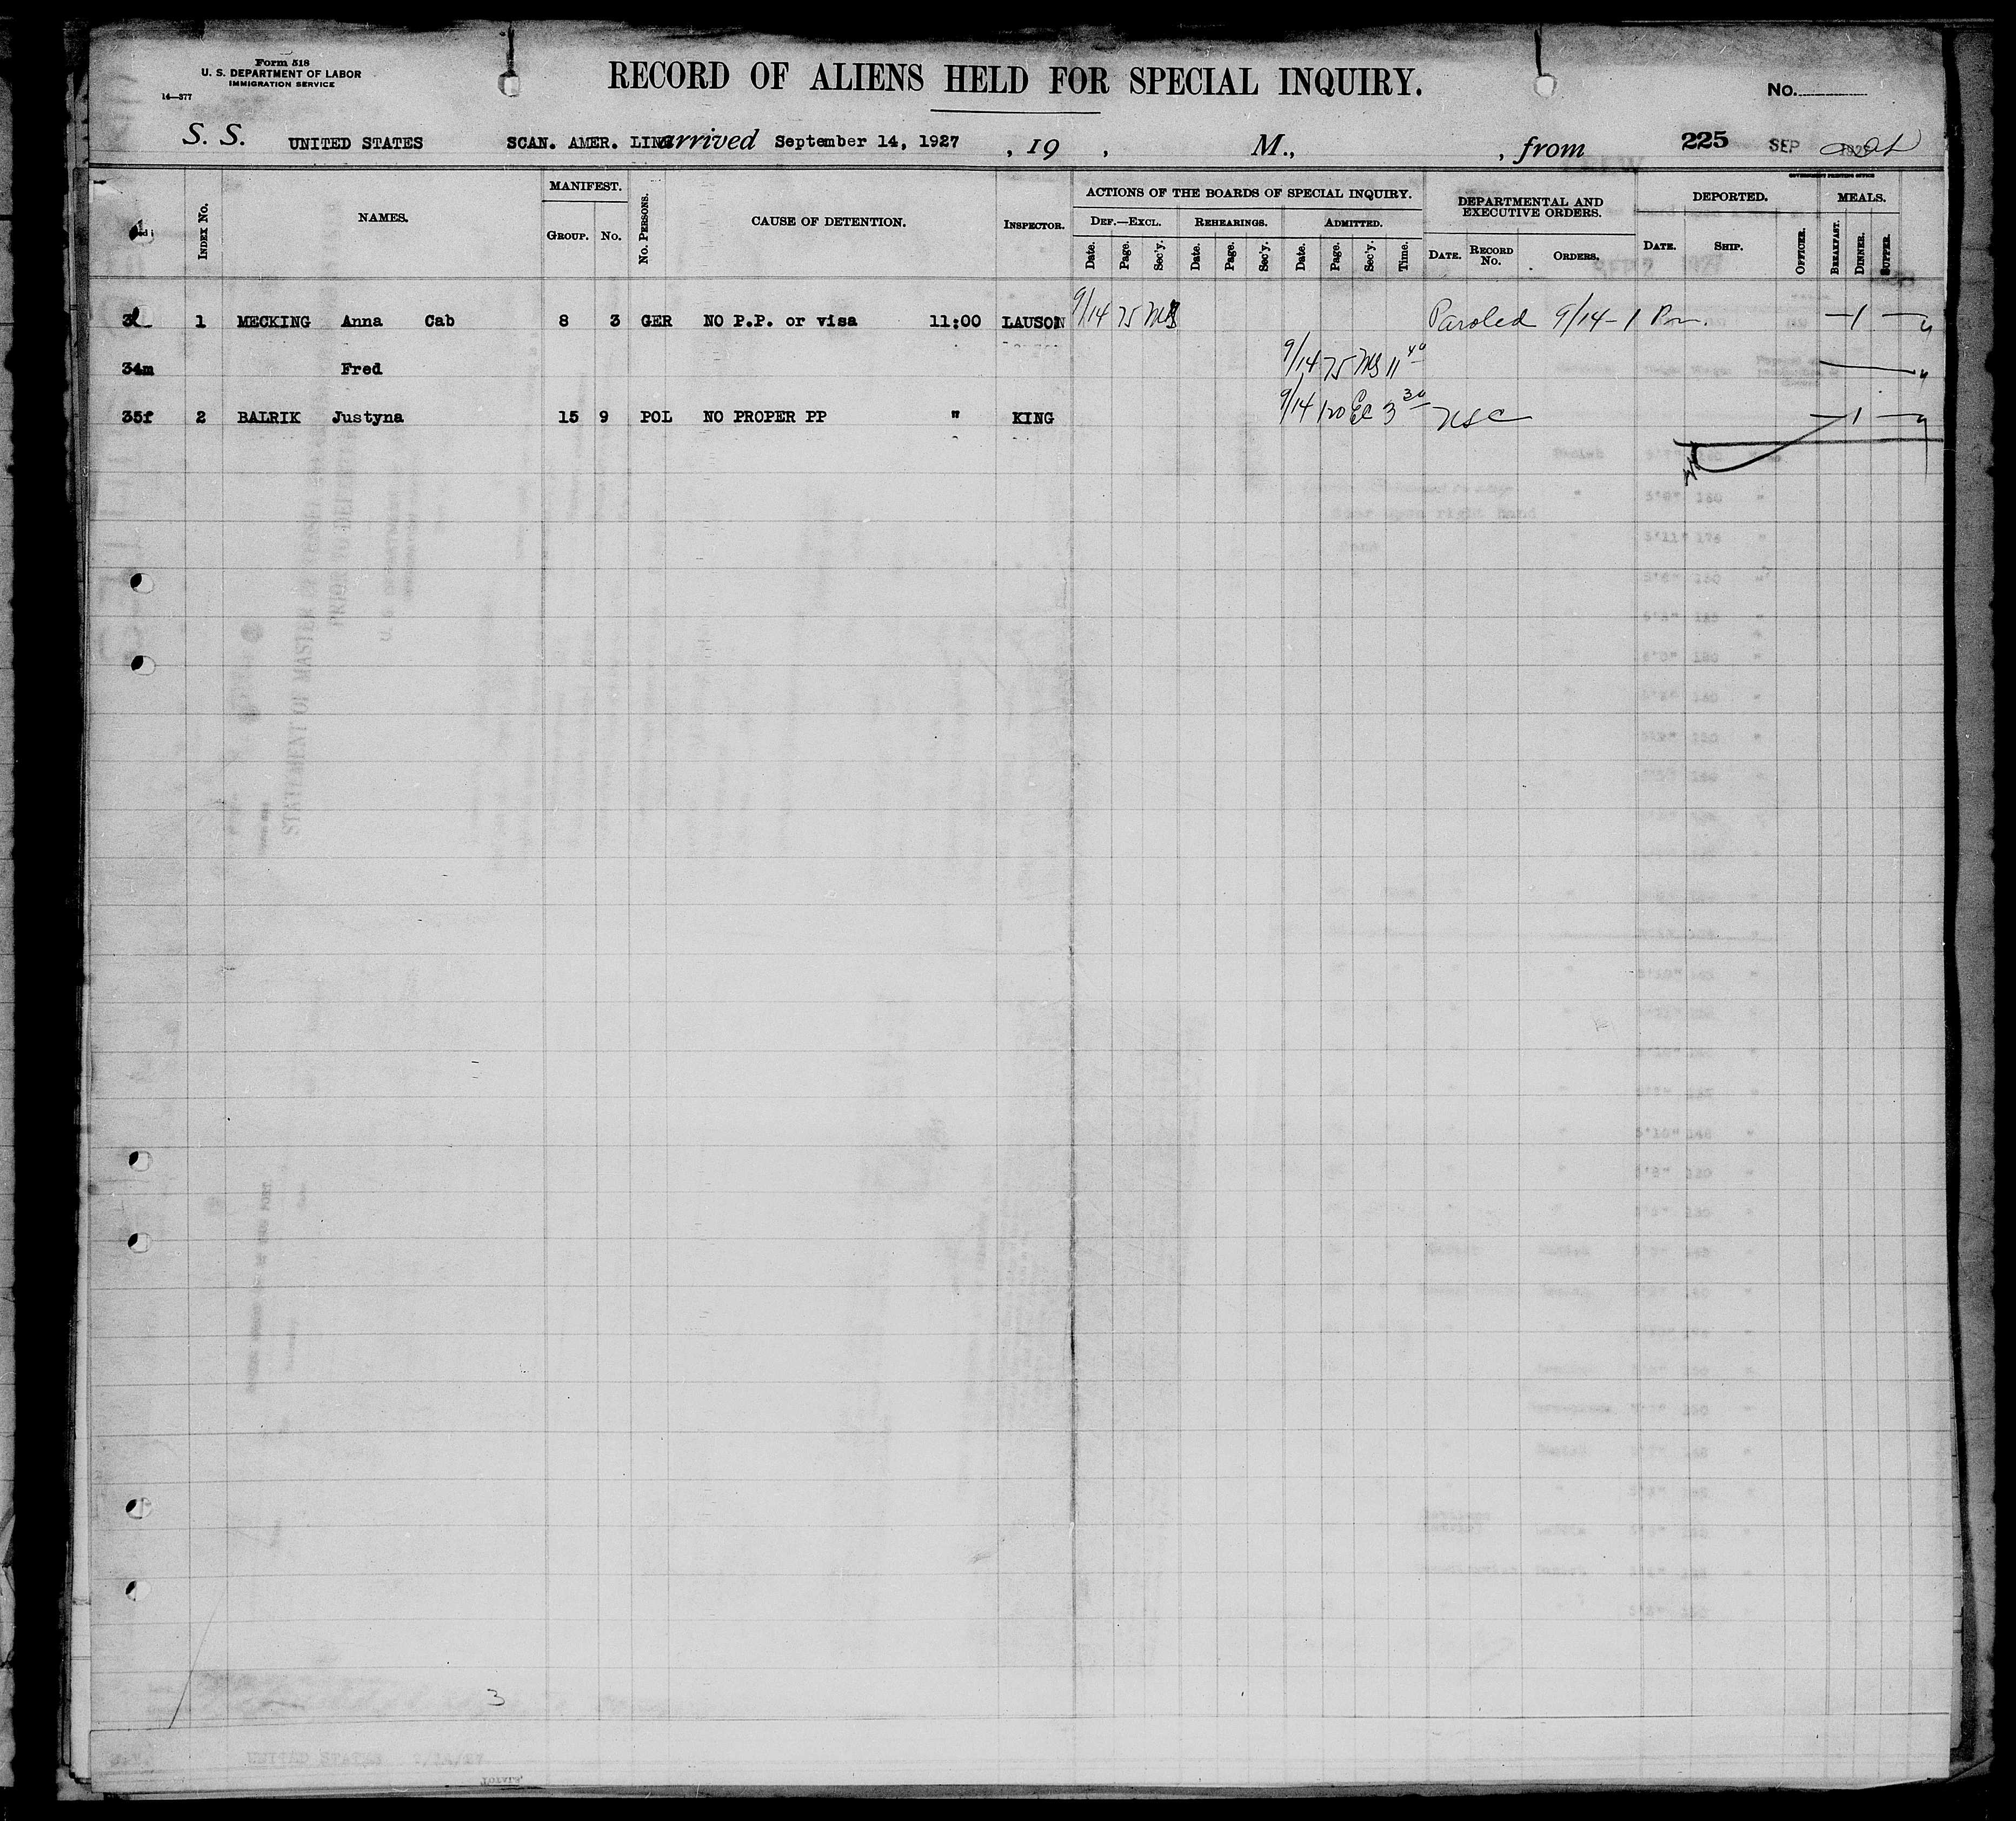 Form 518
U. S. DEPARTMENT OF LABOR
IMMIGRATION SERVICE
16—377
RECORD OF ALIENS HELD FOR SPECIAL INQUIRY.
No.
S. S. UNITED STATES SCAN. AMER. LINE arrived September 14, 1927 , 19 , M., , from 225 SEP
GOVERNMENT PRINTING OFFICE
INDEX No. NAMES. MANIFEST. GROUP. No. No. PERSONS. CAUSE OF DETENTION. INSPECTOR.
ACTIONS OF THE BOARDS OF SPECIAL INQUIRY.
DEF.—EXCL. REHEARINGS. ADMITTED.
Date. Page. Sec'y. Date. Page. Sec'y. Date. Page. Sec'y. Time.
DEPARTMENTAL AND EXECUTIVE ORDERS.
DATE. RECORD No. ORDERS.
DEPORTED.
DATE. SHIP. OFFICER.
MEALS.
BREAKFAST. DINNER. SUPPER.
1 MECKING Anna Cab 8 3 GER NO P.P. or visa 11:00 LAUSON 9/14 75 Paroled 9/14 - 1 Pm. — 1 —
34m Fred 9/14 75 MS 11 40
35f 2 BALRIK Justyna 15 9 POL NO PROPER PP " KING 9/14 120 EC 3 30 — 1 —
3
UNITED STATES
TOTALS.